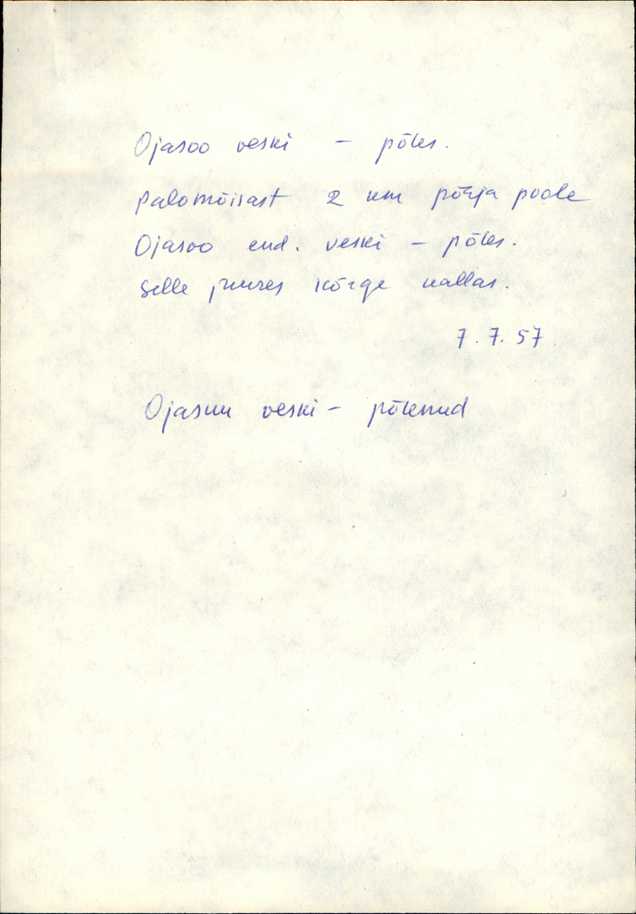 Ojasoo veski – põles.
Palomõisast 2 km põhja poole
Ojasoo end. veski – põles.
Selle juures kõrge kallas.
7.7.57
Ojasuu veski – põlenud